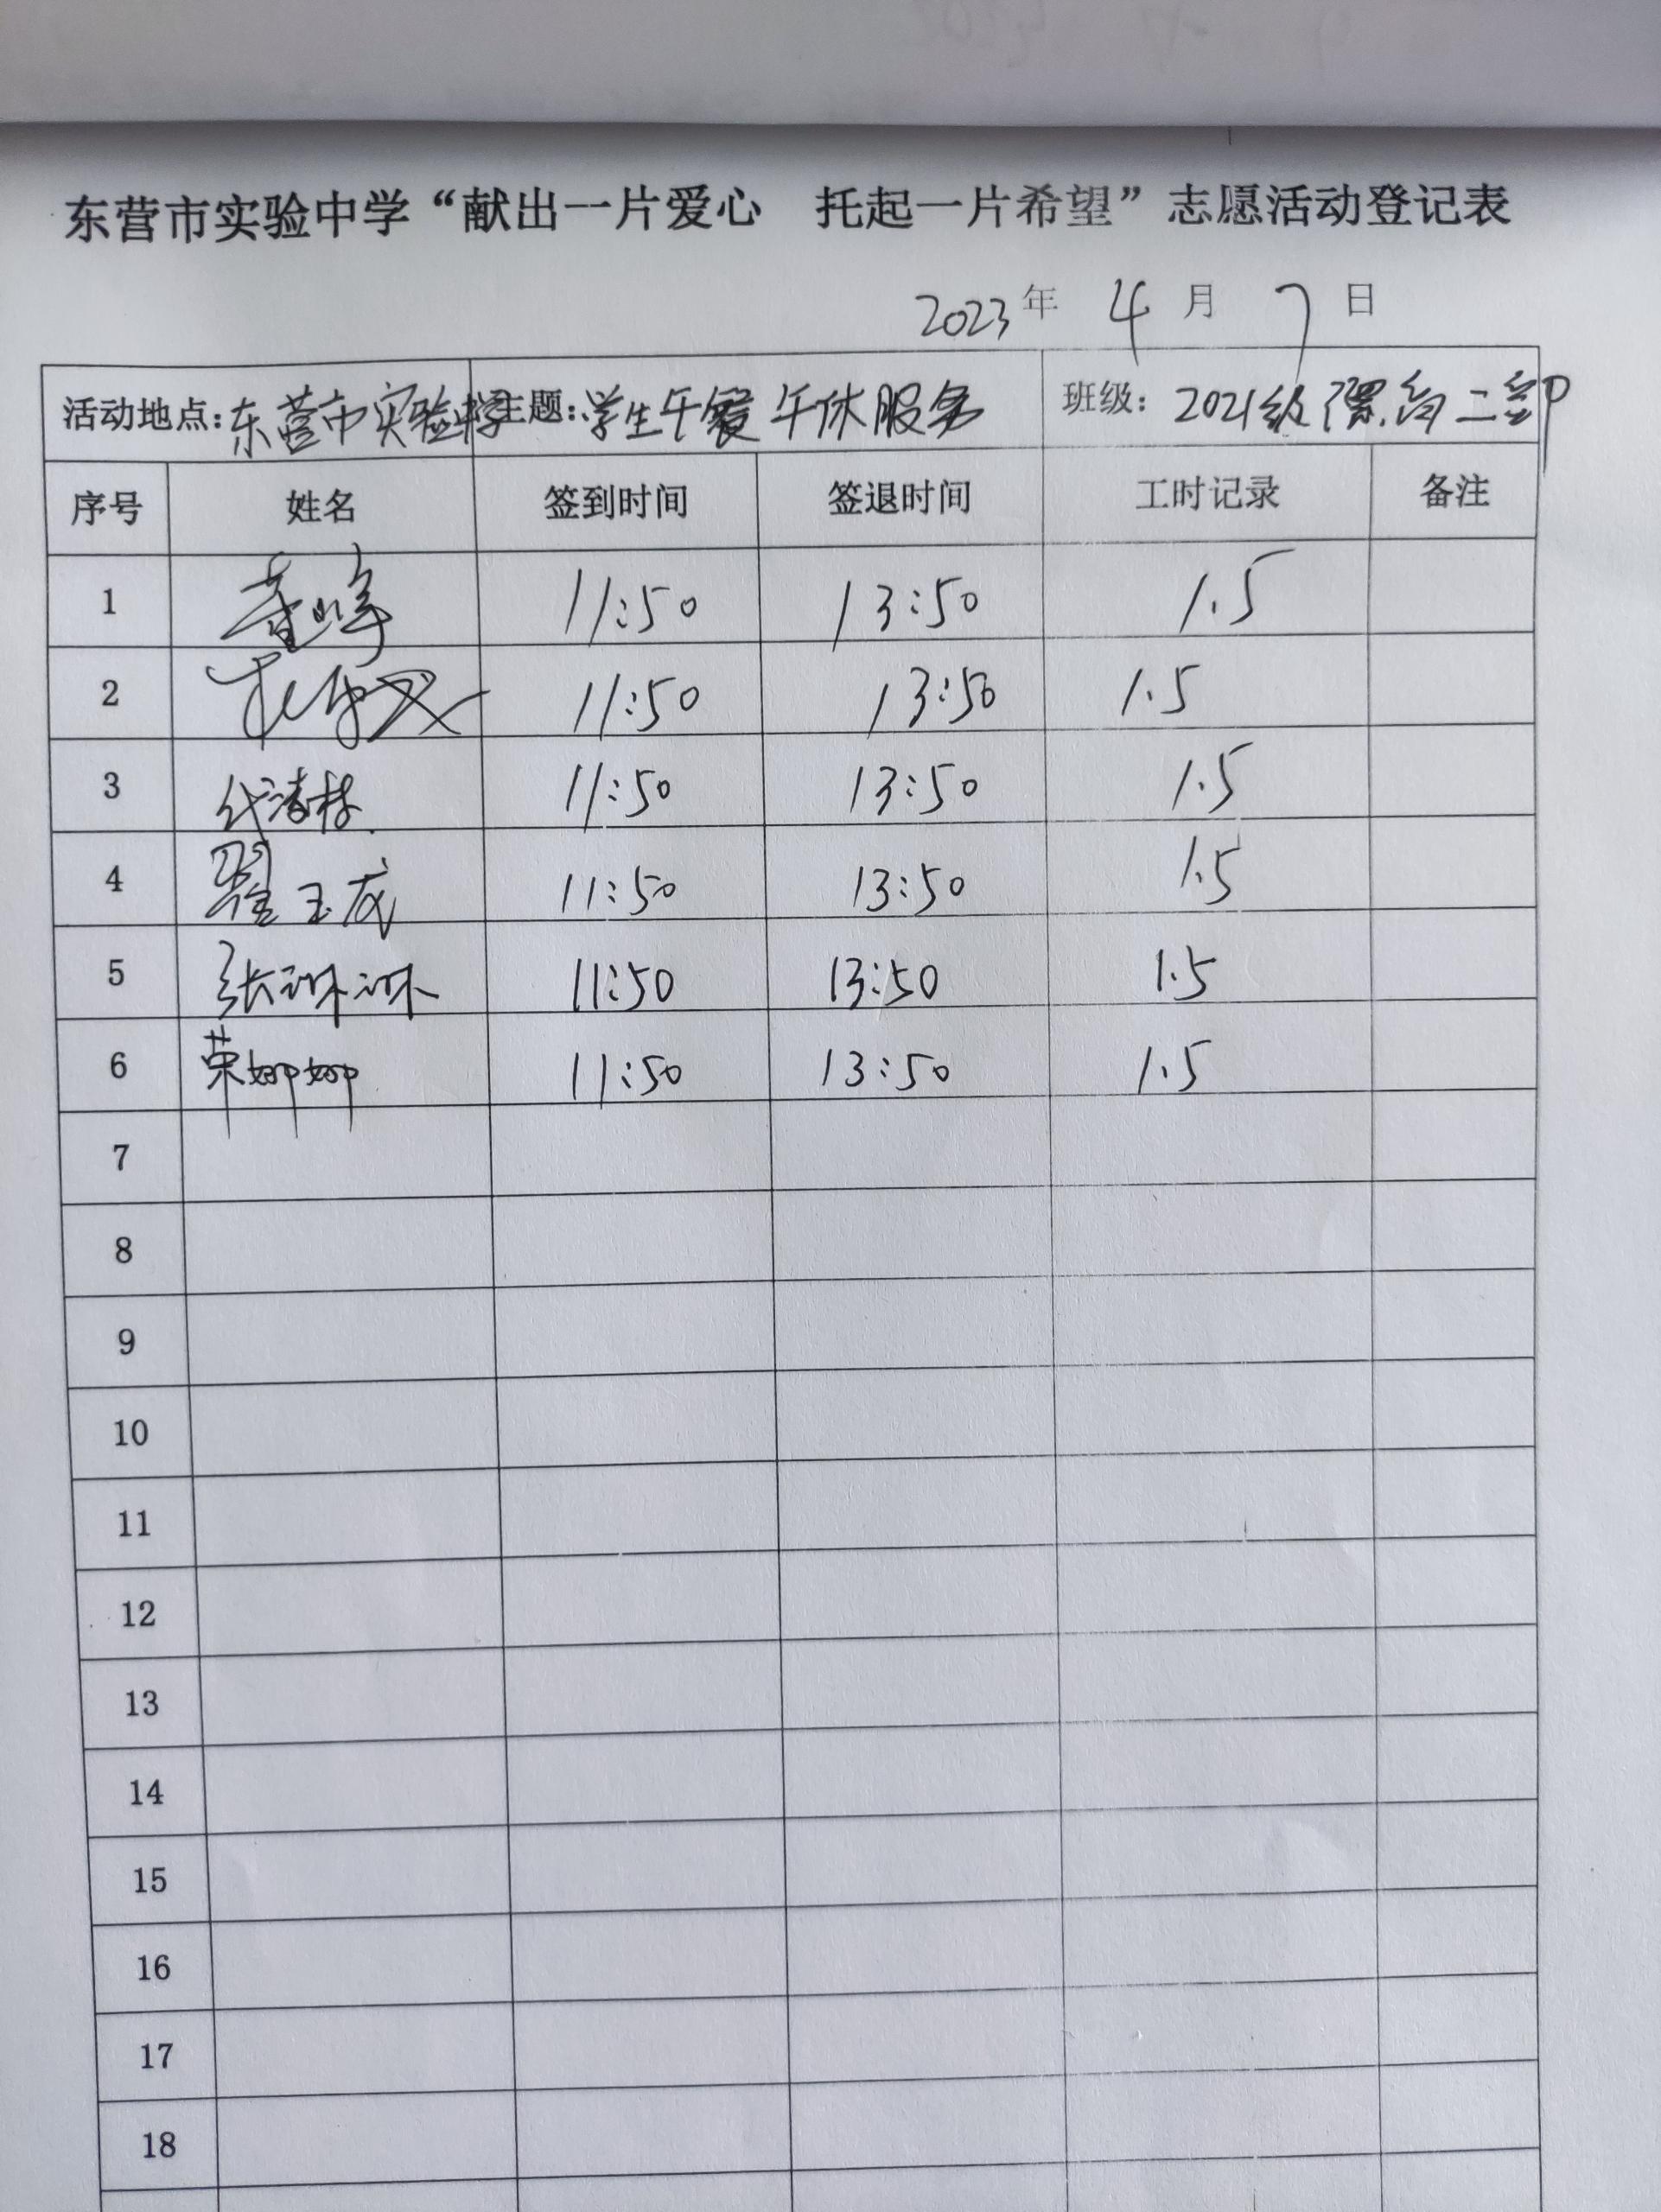 东营市实验中学“献出一片爱心　托起一片希望”志愿活动登记表
2023年 4月 7日
活动地点：东营市实验中学 主题：学生午餐 午休服务 班级：2021级 二部
序号 姓名 签到时间 签退时间 工时记录 备注
1 11:50 13:50 1.5
2 11:50 13:50 1.5
3 代 11:50 13:50 1.5
4 翟玉成 11:50 13:50 1.5
5 张琳琳 11:50 13:50 1.5
6 荣娜娜 11:50 13:50 1.5
7
8
9
10
11
12
13
14
15
16
17
18